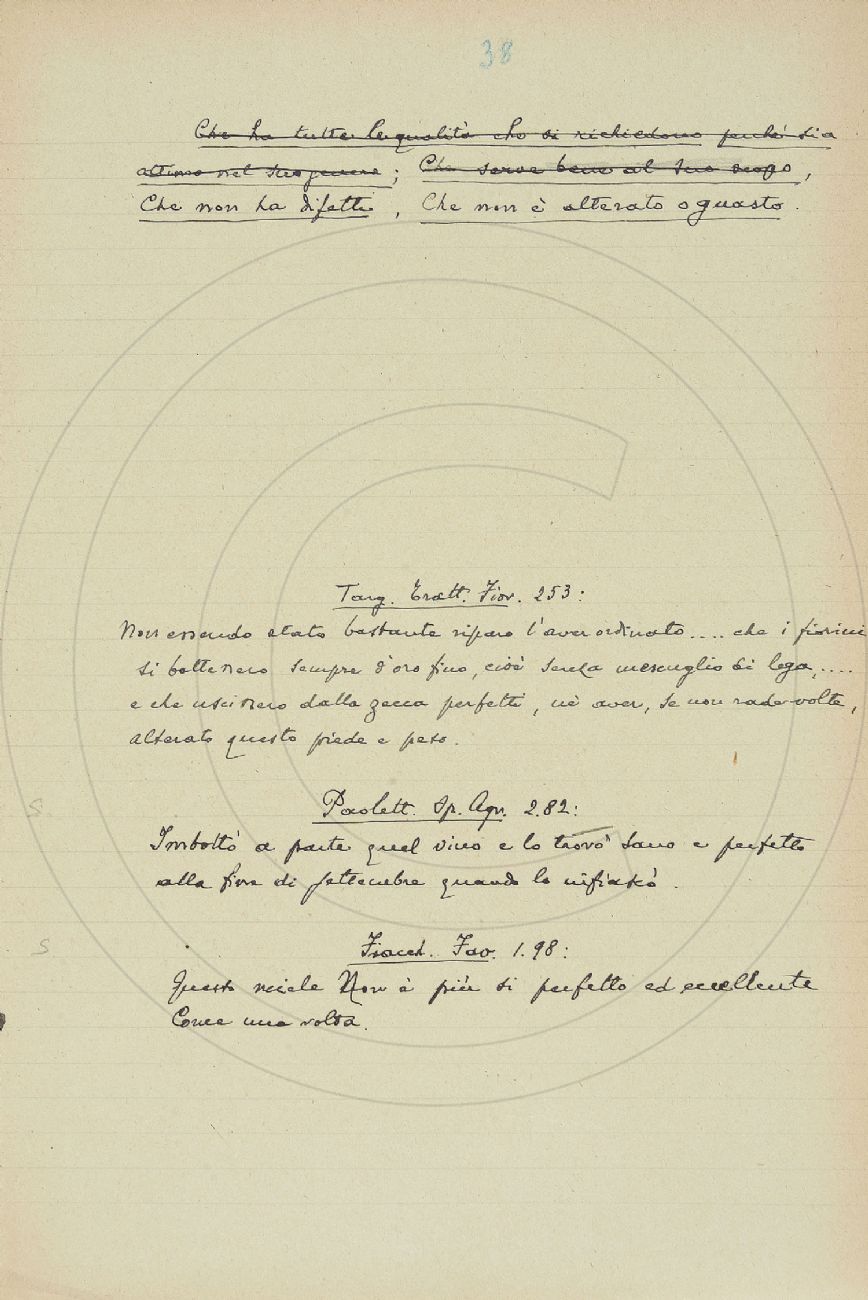 38
Che ha tutte le qualità che si richiedono perchè sia
ottimo nel suo genere; Che serve bene al suo scopo,
Che non ha difetti, Che non è alterato o guasto.
Targ. Tratt. Fior. 253:
Non essendo stato bastante riparo l'aver ordinato.... che i fiorini
si battessero sempre d'oro fino, cioè senza mescuglio di lega,....
e che uscissero dalla zecca perfetti, nè aver, se non rade volte,
alterato questo piede e peso.
S
Paolett. Op. Agr. 2.82:
Imbottò a parte quel vino e lo trovò sano e perfetto
alla fine di settembre quando lo infiascò.
S
Fiacch. Fav. 1.98:
Questo miele Non è più sì perfetto ed eccellente
Come una volta.